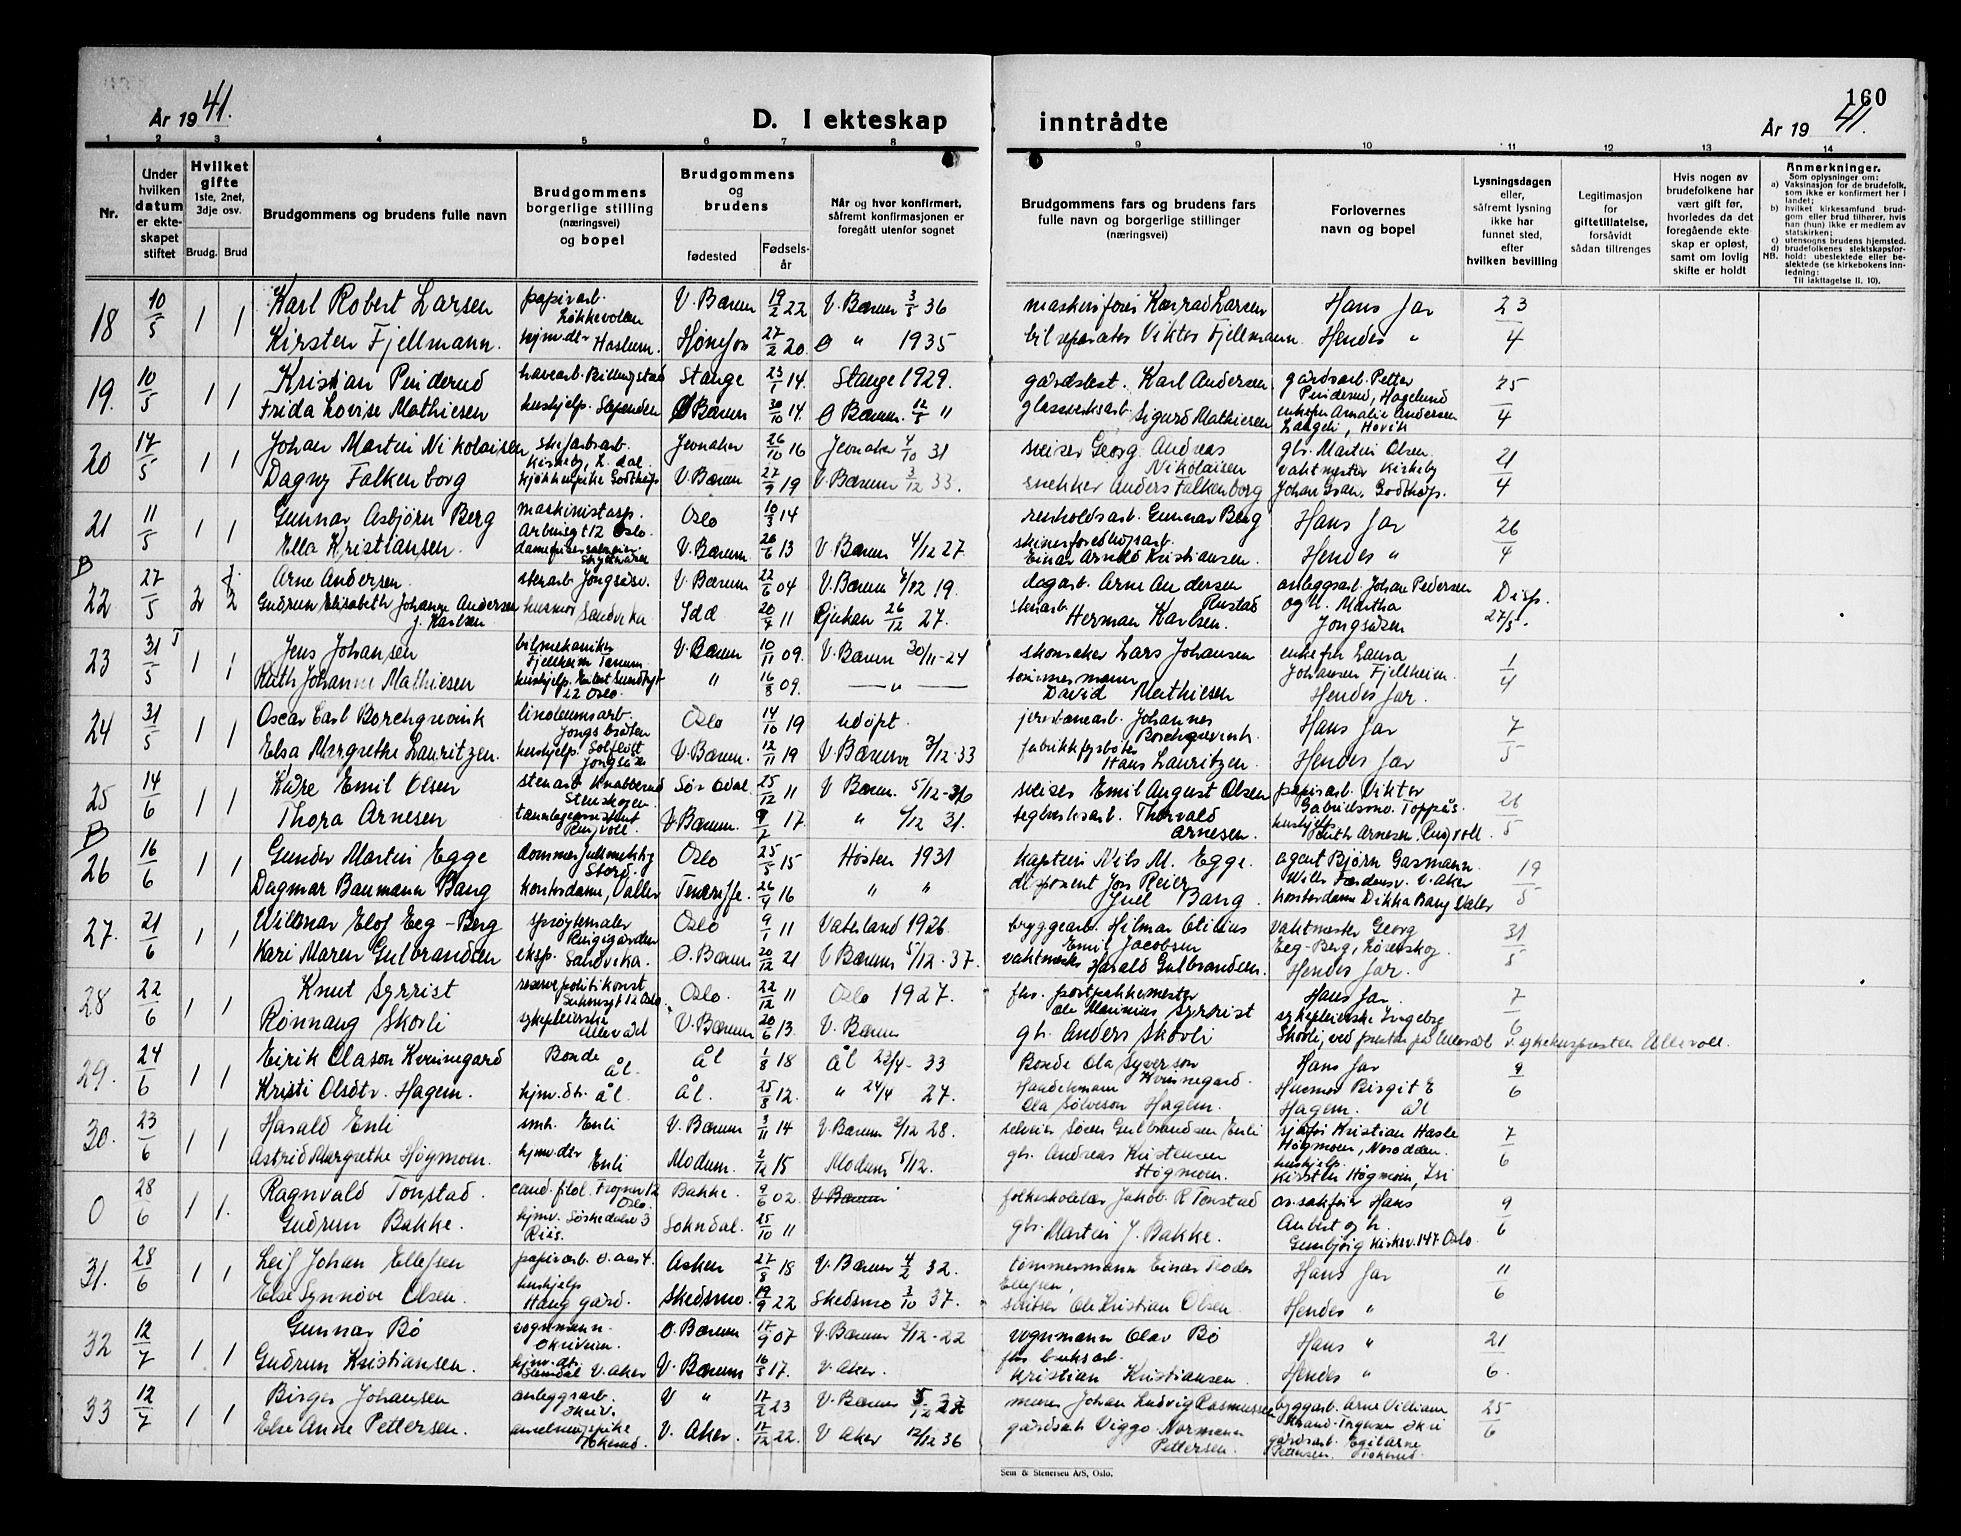 160
År 1941.
D. I ekteskap inntrådte
År 1941.
1 2 3 4 5 6 7 8 9 10 11 12 13 14
Nr.
Under hvilken datum er ekteskapet stiftet
Hvilket gifte 1ste, 2net, 3dje osv.
Brudg. Brud
Brudgommens og brudens fulle navn
Brudgommens borgerlige stilling (næringsvei) og bopel
Brudgommens og brudens
fødested
Fødsels-år
Når og hvor konfirmert, såfremt konfirmasjonen er foregått utenfor sognet
Brudgommens fars og brudens fars fulle navn og borgerlige stillinger (næringsvei)
Forlovernes navn og bopel
Lysningsdagen eller, såfremt lysning ikke har funnet sted, efter hvilken bevilling
Legitimasjon for giftetillatelse, forsåvidt sådan tiltrenges
Hvis nogen av brudefolkene har vært gift før, hvorledes da det foregående ekteskap er opløst, samt om lovlig skifte er holdt
Anmerkninger.
Som oplysninger om:
a) Vaksinasjon for de brudefolk, som ikke er konfirmert her i landet;
b) hvilket kirkesamfund brudgom eller brud tilhører, hvis han (hun) ikke er medlem av statskirken;
c) utensogns brudens hjemsted.
d) brudefolkenes slektskapsforhold: ubeslektede eller beslektede (se kirkebokens innledning:
NB.
Til iakttagelse II. 10).
18 10/5 1 1 Karl Robert Larsen papirarb. Løkkevolen V. Bærum 19/2 22 V. Bærum 3/5 36 Konrad Larsen Hans far 23/4
Kirsten Fjellmann. hjmv. dtr Haslum. Hønefos 27/2 20 Ø " 1935 bilreparatør Viktor Fjellmann Hendes "
19. 10/5 1 1 Kristian Pinderud havearb. Billingstad Stange 23/1 14. Stange 1929. Karl Andersen gårdsarb. Petter Pinderud, Hagelund 25/4
Frida Lovise Mathiesen hushjelp. Slependen Ø Bærum 30/10 14. Ø Bærum. 12/5 " glassverksarb. Sigurd Mathiesen enkefru Amalie Andersen Langeli, Høvik
20 17/5 1 1 Johan Martin Nikolaisen Kirkeby, L. dal. Jevnaker 26/10 16 Jevnaker 4/10 31 sveiser Georg Andreas Nikolaisen gbr. Martin Olsen 21/4
Dagny Falkenborg kjøkkenpike Godthåp V. Bærum 27/9 19 V Bærum 3/12 33. snekker Anders Falkenborg vaktmester Kirkeby Johan Gran, Godthåp.
21 11/5 1 1 Gunnar Asbjørn Berg maskinistasp. Oslo 10/3 14 renholdsarb. Gunnar Berg Hans far 26/4
Ella Kristiansen. V. Bærum 26/6 13 V Bærum 4/12 27. Einar Arnold Kristiansen. Hendes "
B
22 27/5 2 2 Arne Andersen. Jongsåsv. V. Bærum 22/6 04 V. Bærum 4/12 19. dagarb. Arne Andersen Rustad anleggsarb. Johan Pedersen Disp. 27/5.
Gudrun Elisabeth Johanne Andersen f. Karlsen husmor Sandvika Idd 20/7 11 Rjukan 26/12 27. Herman Karlsen. og h. Martha Jongsåsen
23 31/5 1 1 Jens Johansen bilmekaniker Fjellheim Tanum V. Bærum 10/11 09. V. Bærum 30/11-24 skomaker Lars Johansen enkefru Laura Johansen Fjellheim. 1/4
Ruth Johanne Mathiesen hushjelp. 12 Oslo. " 16/8 09. — " — tømmermann David Mathiesen Hendes far.
24 31/5 1 1 Oscar Carl Borchgrevink linoleumsarb. Oslo 14/10 19 udøpt. jernbanearb. Johannes Borchgrevink. Hans far 7/5
Elsa Margrethe Lauritzen. hushjelp. V. Bærum. 12/11 19 V Bærum 3/12-33 fabrikkfyrbøter Hans Lauritzen. Hendes far
25 14/6 1 1 Kåre Emil Olsen stenarb. Knabberud Stenskogen. Sør Odal. 25/12 11 V Bærum. 5/12-36 sveiser Emil August Olsen papirarb. Viktor Toppås. 26/5
Thora Arnesen tannlegeassistent Ringvoll. V Bærum. 17. " 6/12 31. teglverksarb. Thorvald Arnesen. hushjelp Ruth Arnesen, Ringvoll.
B
26 16/6 1 1 Gunder Martin Egge dommerfullmektig Stord. Oslo 25/5 15 Høsten 1931 kaptein Nils M. Egge. agent Bjørn Gasmann. V. Aker 19/5
Dagmar Baumann Bang kontordame, Valler Teneriffe. 26/4 16 " " disponent Jon Reier Juel Bang. kontordame Dikka Bang Valler
27. 21/6 1 1 Willmar Elof Eeg-Berg sprøytemaler Ringigården Oslo 9/1 11 Vaterland 1926. bryggearb. Hilmar Otilius Emil Jacobsen vaktmester Georg Eeg-Berg, Lørenskog 31/5
Kari Maren Gulbrandsen eksp. Sandvika. Ø. Bærum 20/12 21 V Bærum 5/12-37. vaktmester Harald Gulbrandsen. Hendes far.
28 22/6 1 1 Knut Syrrist reservepolitikonst. Oslo. 22/12 11 Oslo 1927. fhv. postpakkmester Ole Marinius Syrrist Hans far 7/6
Rønnaug Skovli sykepleierske Ullevål V. Bærum 20/6 13. V. Bærum gbr. Anders Skovli sykepleierske Ingeborg Skovli, ved presten på Ullevål sykehuspresten Ullevoll.
29. 24/6 1 1 Eirik Olason Kvinnegard Bonde Ål. Ål 1/8 18 Ål 23/4-33 Bonde Ola Syverson Kvinnegard. Hans far 9/6
Kristi Olsdtr. Hagem. hjmv. dtr. Ål Ål. 25/8 12. " 24/4 27. Handelsmann Ola Sølveson Hagem. Husmor Birgit E Hagem. Ål
30. 23/6 1 1 Harald Enli smb. Enli V. Bærum 3/11 14 V. Bærum 2/12 28. Søren Gulbrandsen Enli Kristian Hasle Høgmoen, Nesodden. 7/6
Astrid Margrethe Høgmoen. hjmv. dtr Enli Modum. 2/12 15 Modum 5/12. gbr. Andreas Kristensen Høgmoen. hushjelp Kirsten Høgmoen,
0 28/6 1 1. Ragnvald Tonstad. cand. filol. Frognerv 12 Oslo. Bakke. 9/6 02. V Bærum folkeskolelær Jakob R Tonstad o.r. sakfører Hans Aubert og h. 9/6
Gudrun Bakke. Sørkedalsv 3 Riis. Sokndal. 25/10 11 gbr. Martin J. Bakke. Gunbjørg Kirkev. 147 Oslo.
31. 28/6 1 1 Leif Johan Ellefsen papirarb. Asker 27/8 18 V. Bærum 4/2 32. tømmermann Einar Ellefsen, Hans far 11/6
Else Synnøve Olsen. hushjelp Haug gård. Skedsmo. 19/9 22 Skedsmo 3/10 37. Ole Kristian Olsen. Hendes "
32 12/7 1 1 Gunnar Bø vognmann. Ø. Bærum 17/9 07 V. Bærum 2/12-22 vognmann Olav Bø Hans " 21/6
Gudrun Kristiansen. V. Aker V. Bærum 16/5 17. V. Aker. fhv bruksarb. Kristian Kristiansen. Hendes "
33 12/7 1 1 Birger Johansen anleggsarb. V " 17/2 23 V. Bærum 5/12 37 murer Johan Ludvig Rasmussen byggarb. Arne Villiam 25/6
Else Anne Pettersen. V. Aker. 17/12 22. V Aker 12/12 36 gårdsarb Viggo Normann Pettersen. gårdsarb. Egil Arne Pettersen,
Sem & Stenersen A/S, Oslo.